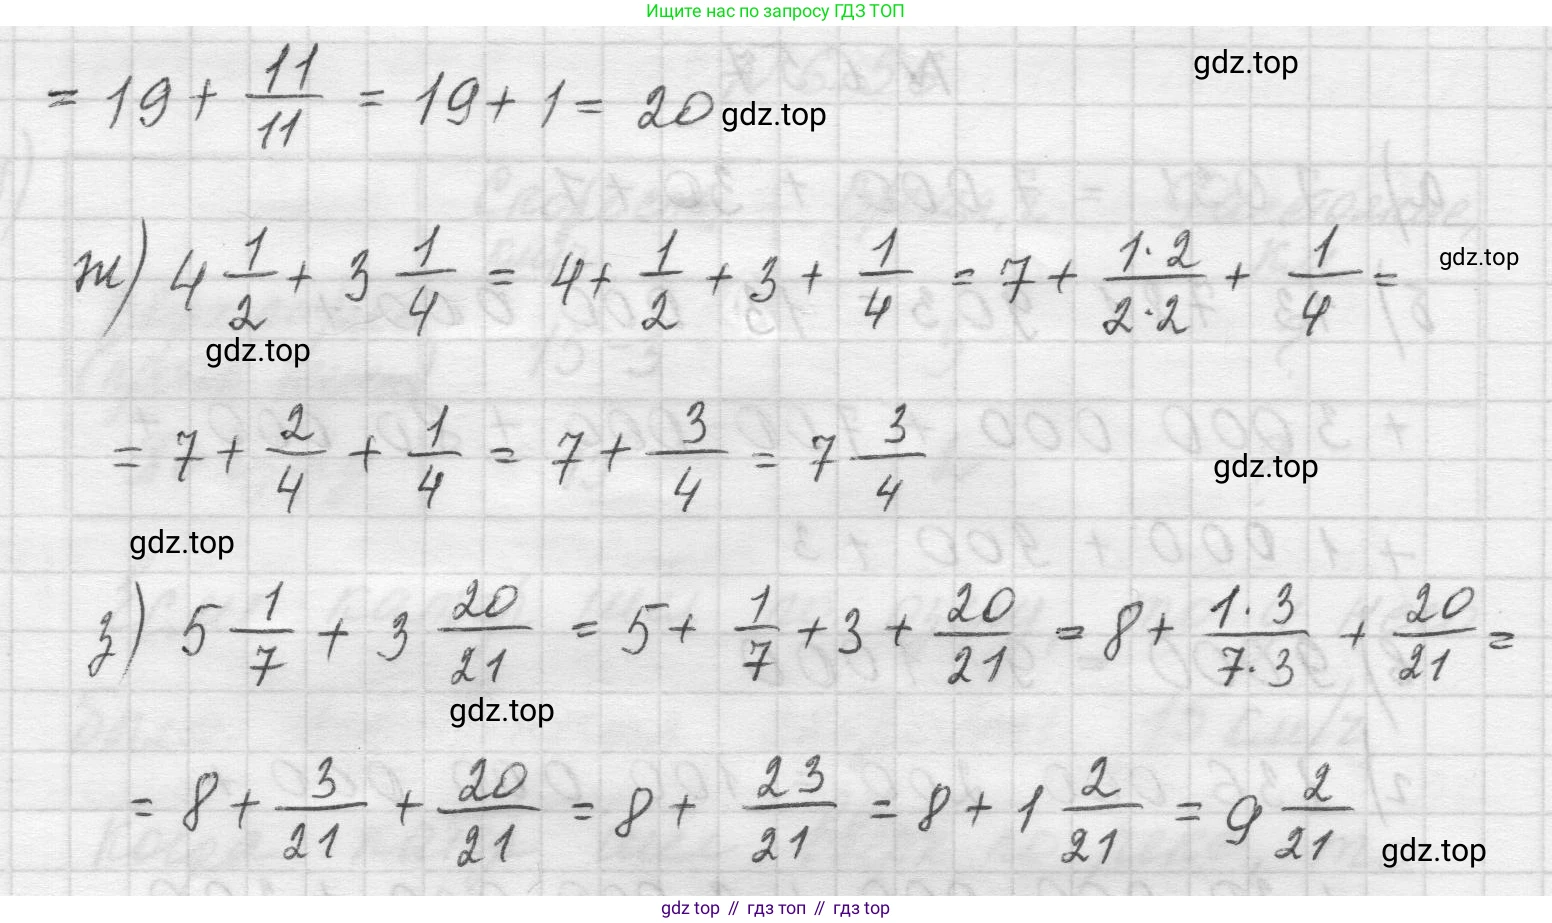 Ищите нас по запросу ГДЗ ТОП
gdz.top
= 19 + 11/11 = 19 + 1 = 20 gdz.top
ж) 4 1/2 + 3 1/4 = 4 + 1/2 + 3 + 1/4 = 7 + 1·2/2·2 + 1/4 = gdz.top
gdz.top
= 7 + 2/4 + 1/4 = 7 + 3/4 = 7 3/4 gdz.top
gdz.top
з) 5 1/7 + 3 20/21 = 5 + 1/7 + 3 + 20/21 = 8 + 1·3/7·3 + 20/21 =
gdz.top
= 8 + 3/21 + 20/21 = 8 + 23/21 = 8 + 1 2/21 = 9 2/21 gdz.top
gdz top // гдз топ // гдз top